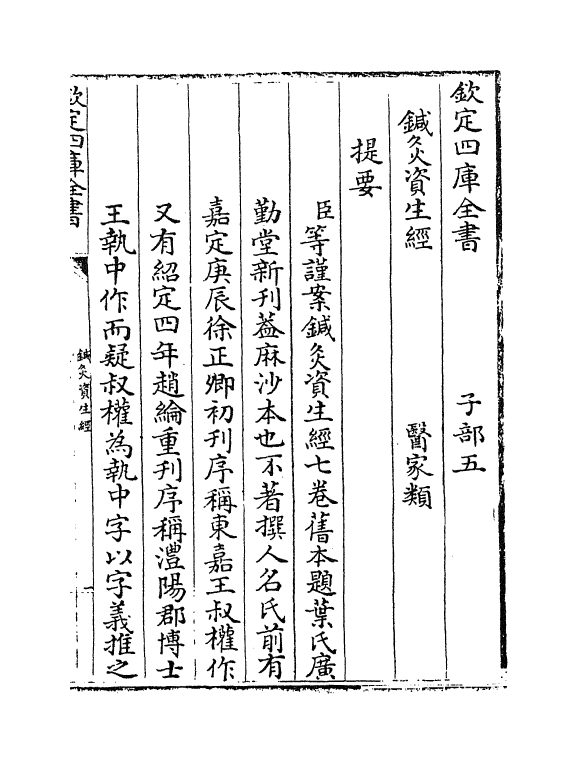 欽定四庫全書 子部五
鍼灸資生經 醫家類
提要
臣等謹案鍼灸資生經七卷舊本題葉氏廣
勤堂新刋葢麻沙本也不著撰人名氏前有
嘉定庚辰徐正卿初刋序稱東嘉王叔權作
又有紹定四年趙綸重刋序稱澧陽郡博士
王執中作而疑叔權為執中字以字義推之
欽定四庫全書
鍼灸資生經
一